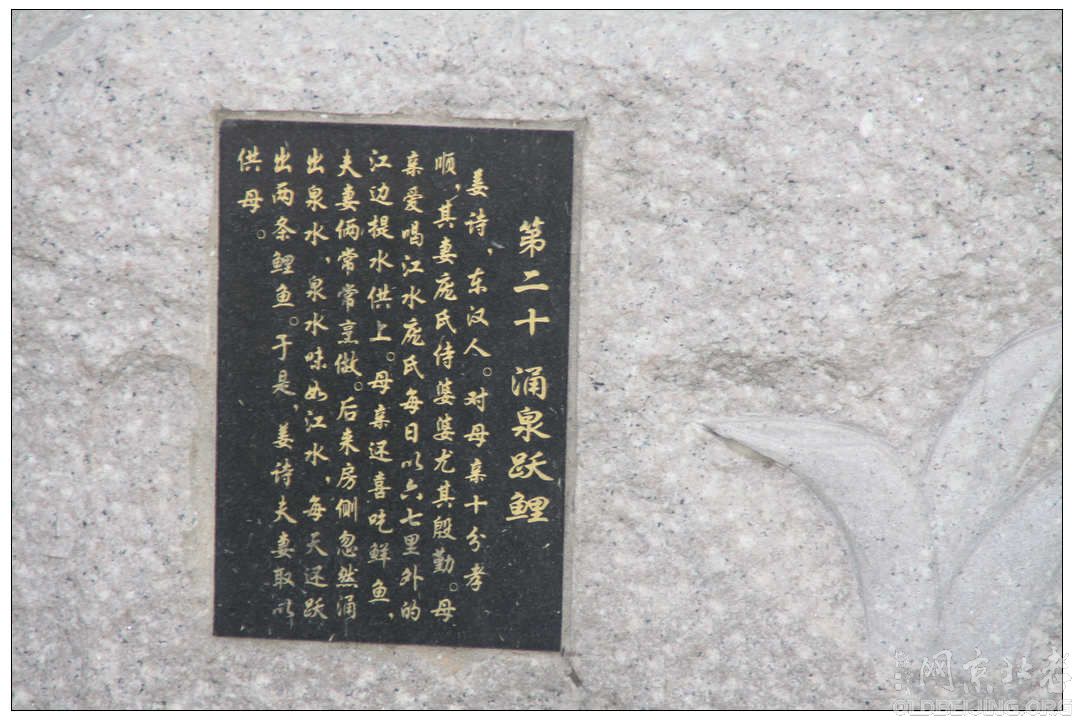 第二十 涌泉跃鲤
姜诗，东汉人。对母亲十分孝
顺，其妻庞氏侍婆婆尤其殷勤。母
亲爱喝江水庞氏每日以六七里外的
江边提水供上。母亲还喜吃鲜鱼，
夫妻俩常常烹做。后来房侧忽然涌
出泉水，泉水味如江水，每天还跃
出两条鲤鱼。于是，姜诗夫妻取以
供母。
老北京网
OLDBEIJING.ORG